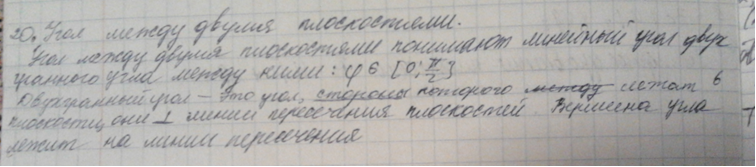 20. Угол между двумя плоскостями.
Угол между двумя плоскостями понимают линейный угол двух
гранного угла между ними: φ ∈ [0; π/2]
Двухгранный угол - это угол, стороны которого между лежат в
плоскостях, они ⊥ линии пересечения плоскостей. Вершина угла
лежит на линии пересечения